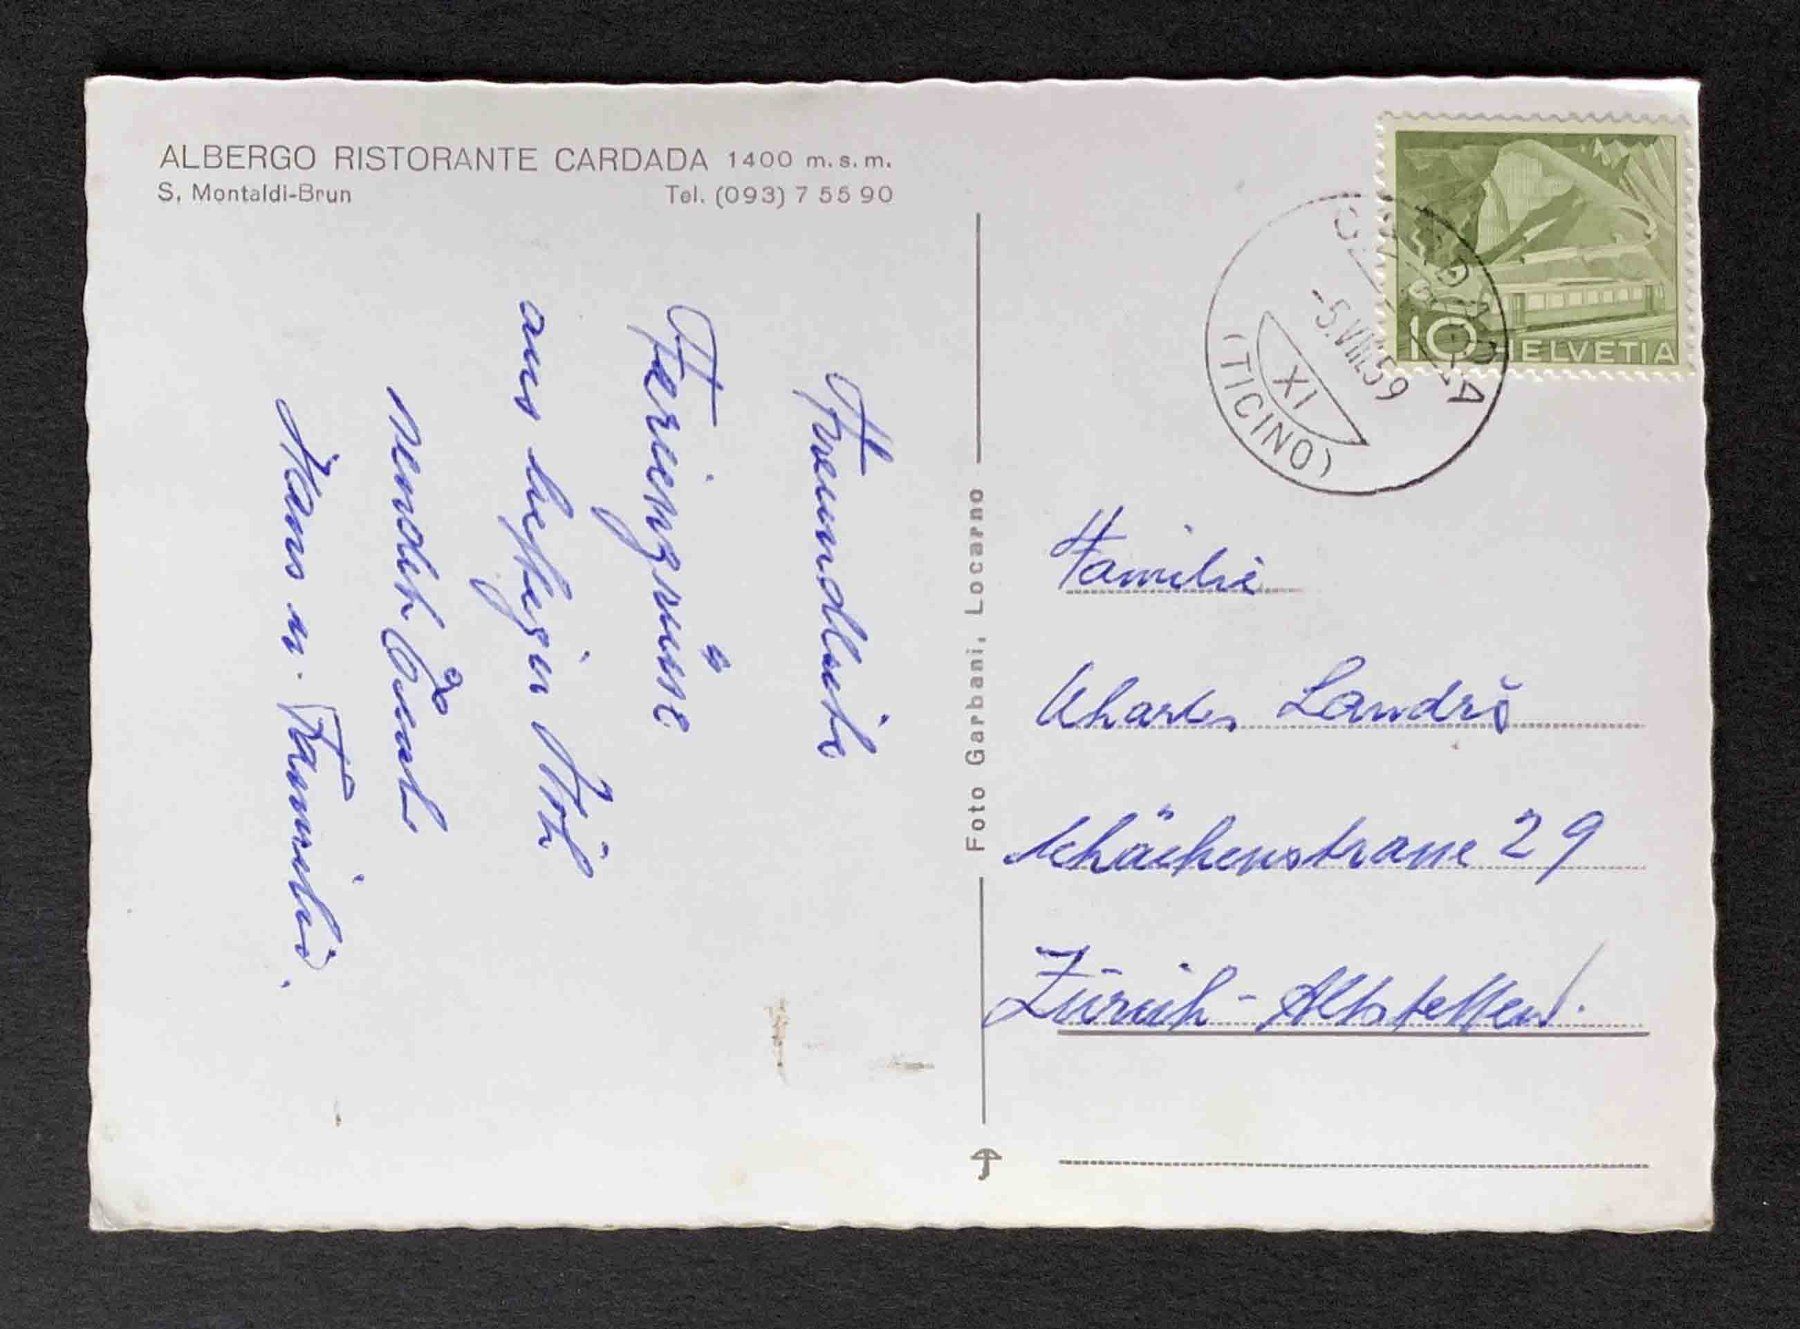 ALBERGO RISTORANTE CARDADA 1400 m.s.m.
S. Montaldi-Brun Tel. (093) 7 55 90
Freundliche
Feriengrüsse
aus
sendet Euch
Hans u. Familie.
Foto Garbani, Locarno
CARDADA
-5.VIII.59
XI
(TICINO)
10 HELVETIA
Familie
Charles Landis
Schächenstrasse 29
Zürich - Altstetten.